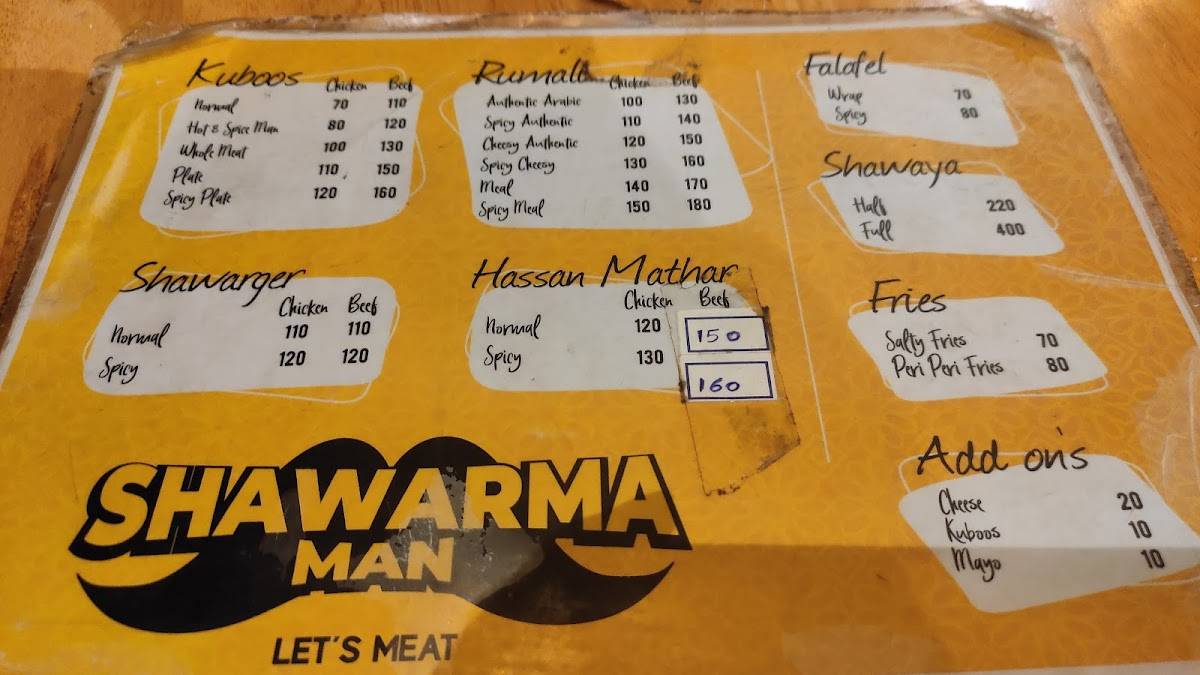 Kuboos
Chicken Beef
Normal 70 110
Hot & Spice Man 80 120
Whole Meat 100 130
Plate 110 150
Spicy Plate 120 160
Rumali
Chicken Beef
Authentic Arabic 100 130
Spicy Authentic 110 140
Cheesy Authentic 120 150
Spicy Cheesy 130 160
Meal 140 170
Spicy Meal 150 180
Falafel
Wrap 70
Spicy 80
Shawaya
Half 220
Full 400
Shawarger
Chicken Beef
Normal 110 110
Spicy 120 120
Hassan Mathar
Chicken Beef
Normal 120 150
Spicy 130 160
Fries
Salty Fries 70
Peri Peri Fries 80
Add on's
Cheese 20
Kuboos 10
Mayo 10
SHAWARMA
MAN
LET'S MEAT